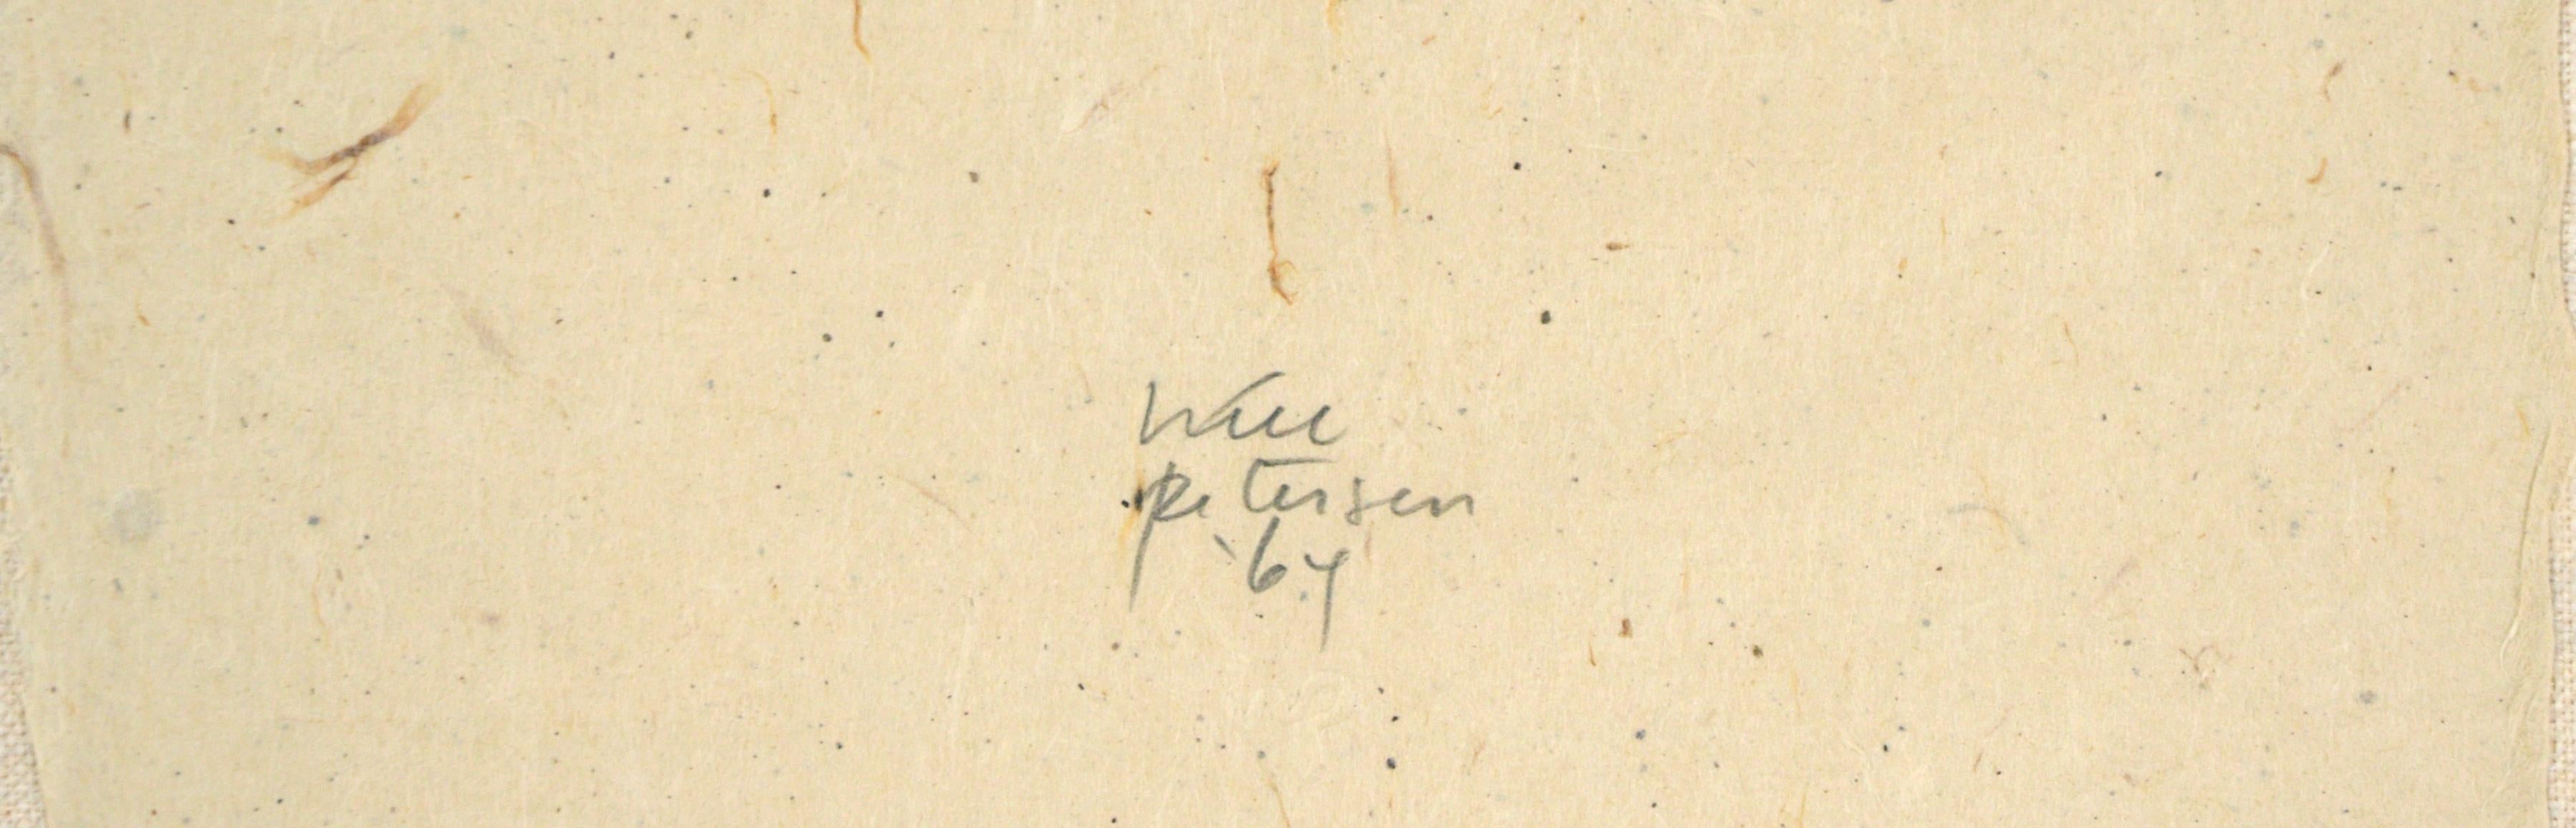 Will
Petersen
'64